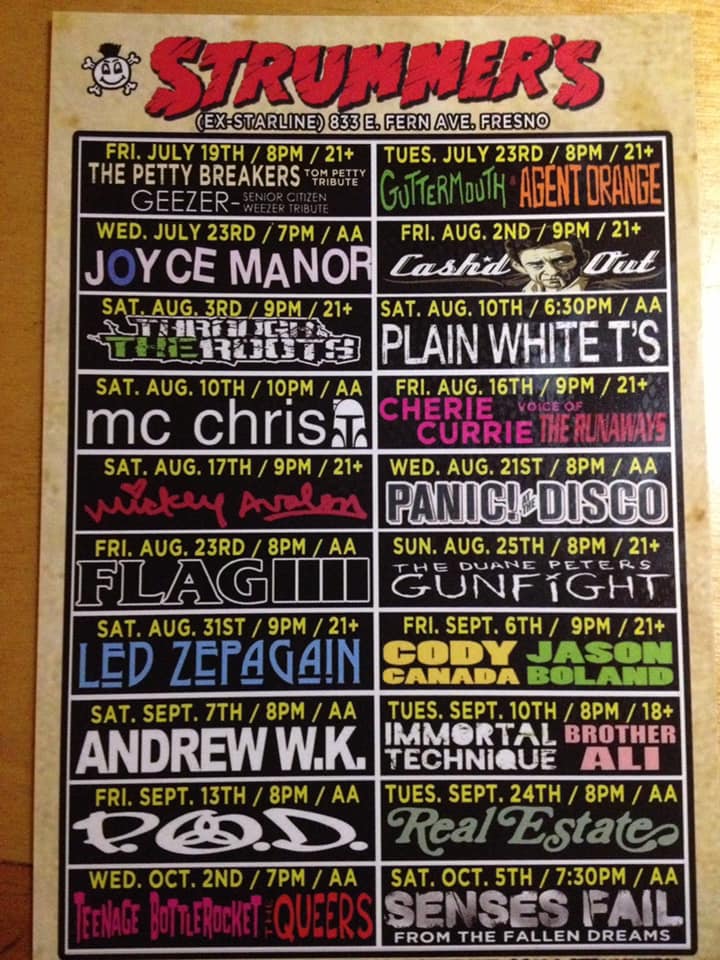 STRUMMER'S
(EX-STARLINE) 833 E. FERN AVE. FRESNO
FRI. JULY 19TH / 8PM / 21+
THE PETTY BREAKERS TOM PETTY TRIBUTE
GEEZER- SENIOR CITIZEN WEEZER TRIBUTE
TUES. JULY 23RD / 8PM / 21+
GUTTERMOUTH & AGENT ORANGE
WED. JULY 23RD / 7PM / AA
JOYCE MANOR
FRI. AUG. 2ND / 9PM / 21+
Cash'd Out
SAT. AUG. 3RD / 9PM / 21+
THROUGH
THE ROOTS
SAT. AUG. 10TH / 6:30PM / AA
PLAIN WHITE T'S
SAT. AUG. 10TH / 10PM / AA
mc chris
FRI. AUG. 16TH / 9PM / 21+
CHERIE VOICE OF
CURRIE THE RUNAWAYS
SAT. AUG. 17TH / 9PM / 21+
mickey avalon
WED. AUG. 21ST / 8PM / AA
PANIC! AT THE DISCO
FRI. AUG. 23RD / 8PM / AA
FLAG
SUN. AUG. 25TH / 8PM / 21+
THE DUANE PETERS
GUNFIGHT
SAT. AUG. 31ST / 9PM / 21+
LED ZEPAGAIN
FRI. SEPT. 6TH / 9PM / 21+
CODY JASON
CANADA BOLAND
SAT. SEPT. 7TH / 8PM / AA
ANDREW W.K.
TUES. SEPT. 10TH / 8PM / 18+
IMMORTAL BROTHER
TECHNIQUE ALI
FRI. SEPT. 13TH / 8PM / AA
P.O.D.
TUES. SEPT. 24TH / 8PM / AA
Real Estate
WED. OCT. 2ND / 7PM / AA
TEENAGE BOTTLEROCKET THE QUEERS
SAT. OCT. 5TH / 7:30PM / AA
SENSES FAIL
FROM THE FALLEN DREAMS